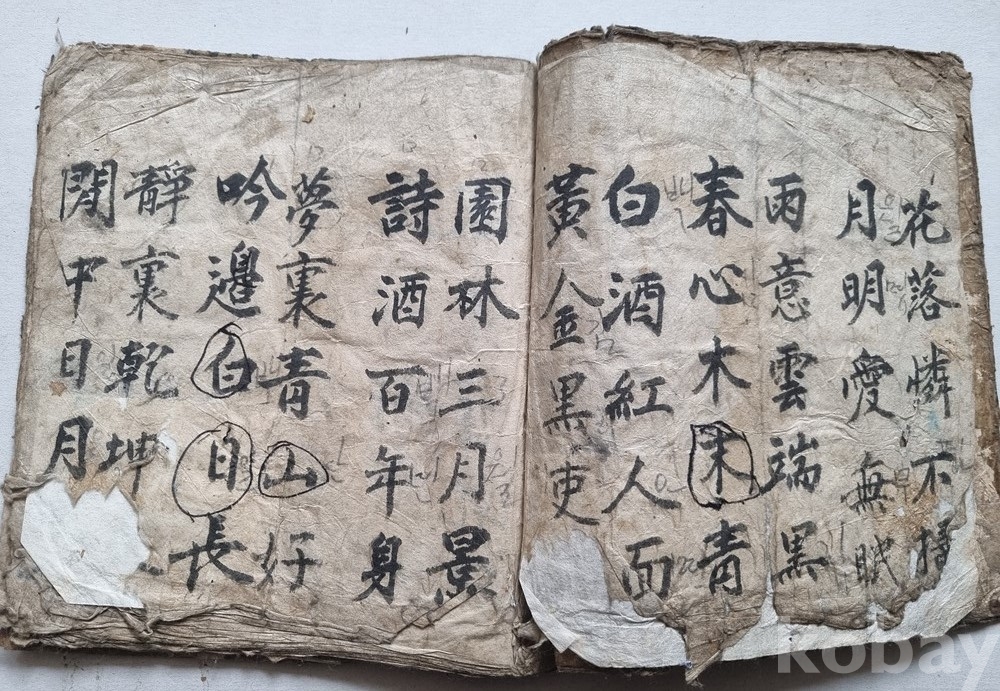 花落憐不掃
月明愛無眠
雨意雲端黑
春心木末青
白酒紅人面
黃金黑吏
園林三月景
詩酒百年身
夢裏青山好
吟邊白日長
靜裏乾坤
閒中日月
Kobay